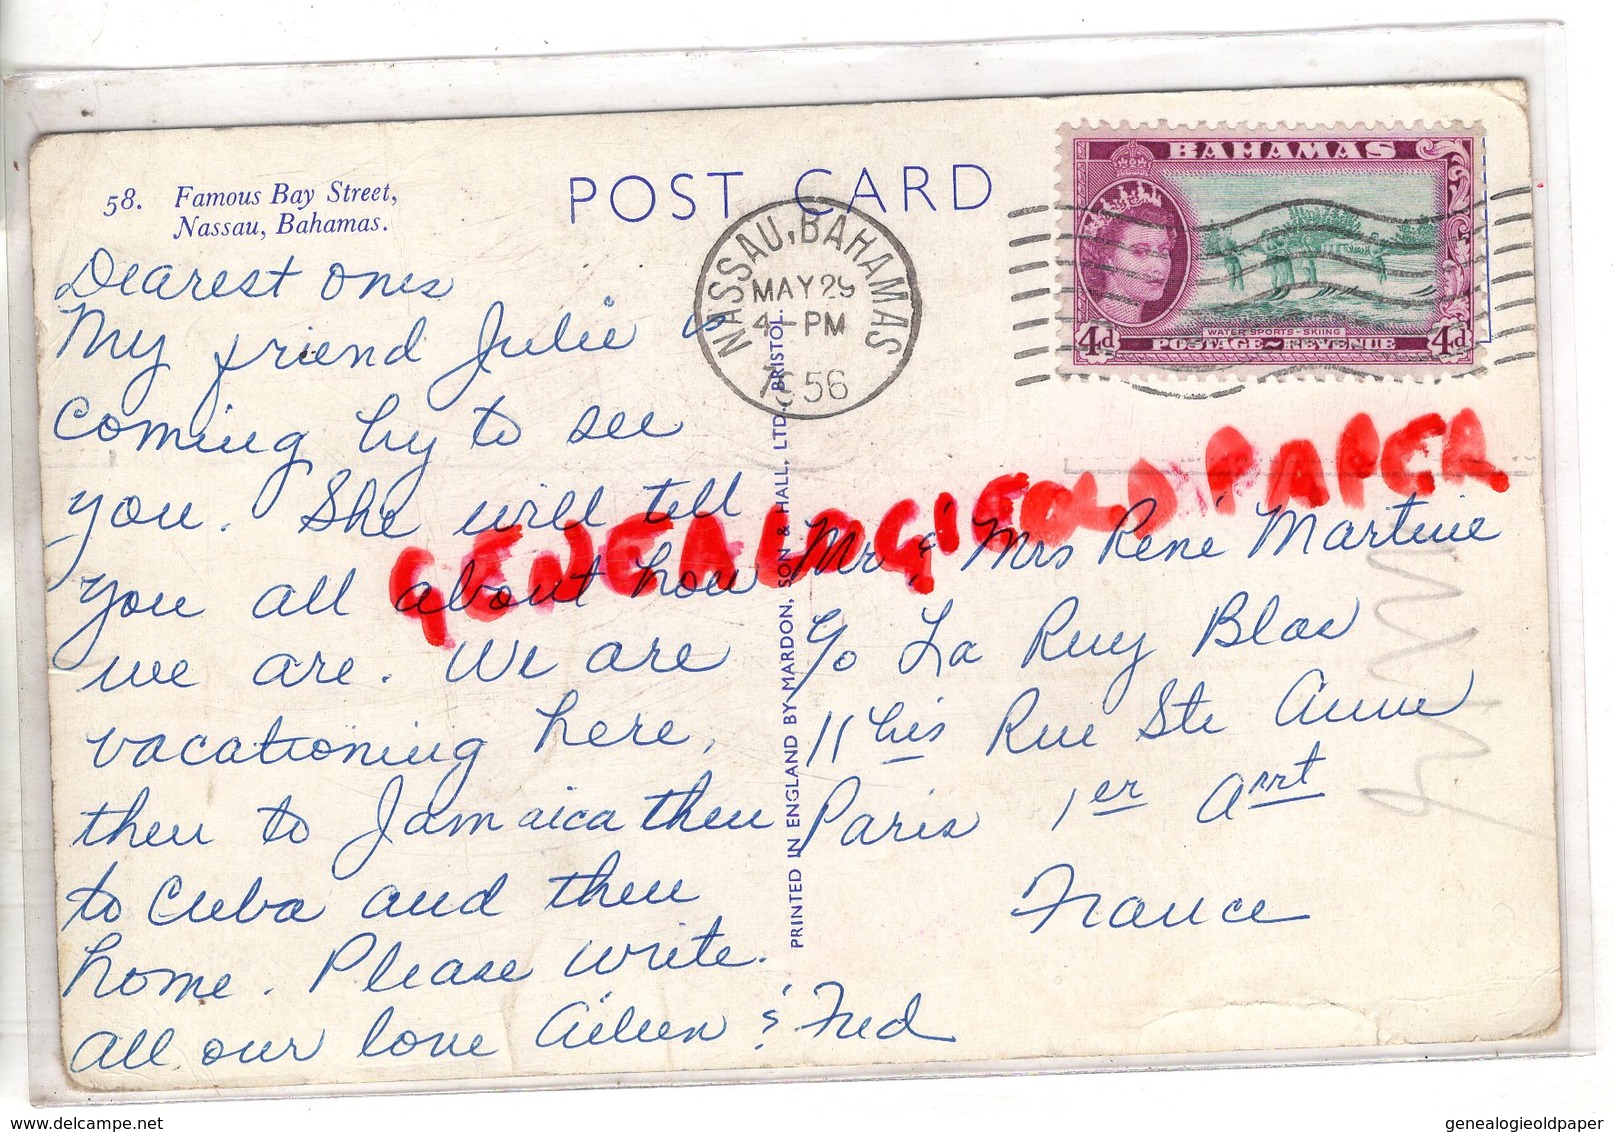 58. Famous Bay Street,
Nassau, Bahamas.
POST CARD
NASSAU, BAHAMAS
MAY 29
4 - PM
56
BAHAMAS
WATER SPORTS - SKIING
4d POSTAGE ~ REVENUE 4d
Dearest ones
My friend Julie is
coming by to see
you. She will tell
you all about how
we are. We are
vacationing here,
then to Jamaica then
to Cuba and then
home. Please write.
All our love Aileen & Fred
PRINTED IN ENGLAND BY MARDON, SON & HALL, LTD., BRISTOL.
GENEALOGIEOLDPAPER
Mr & Mrs René Martine
c/o La Ruy Blas
11 bis Rue Ste Anne
Paris 1er Arrt
France
delcampe.net
genealogieoldpaper